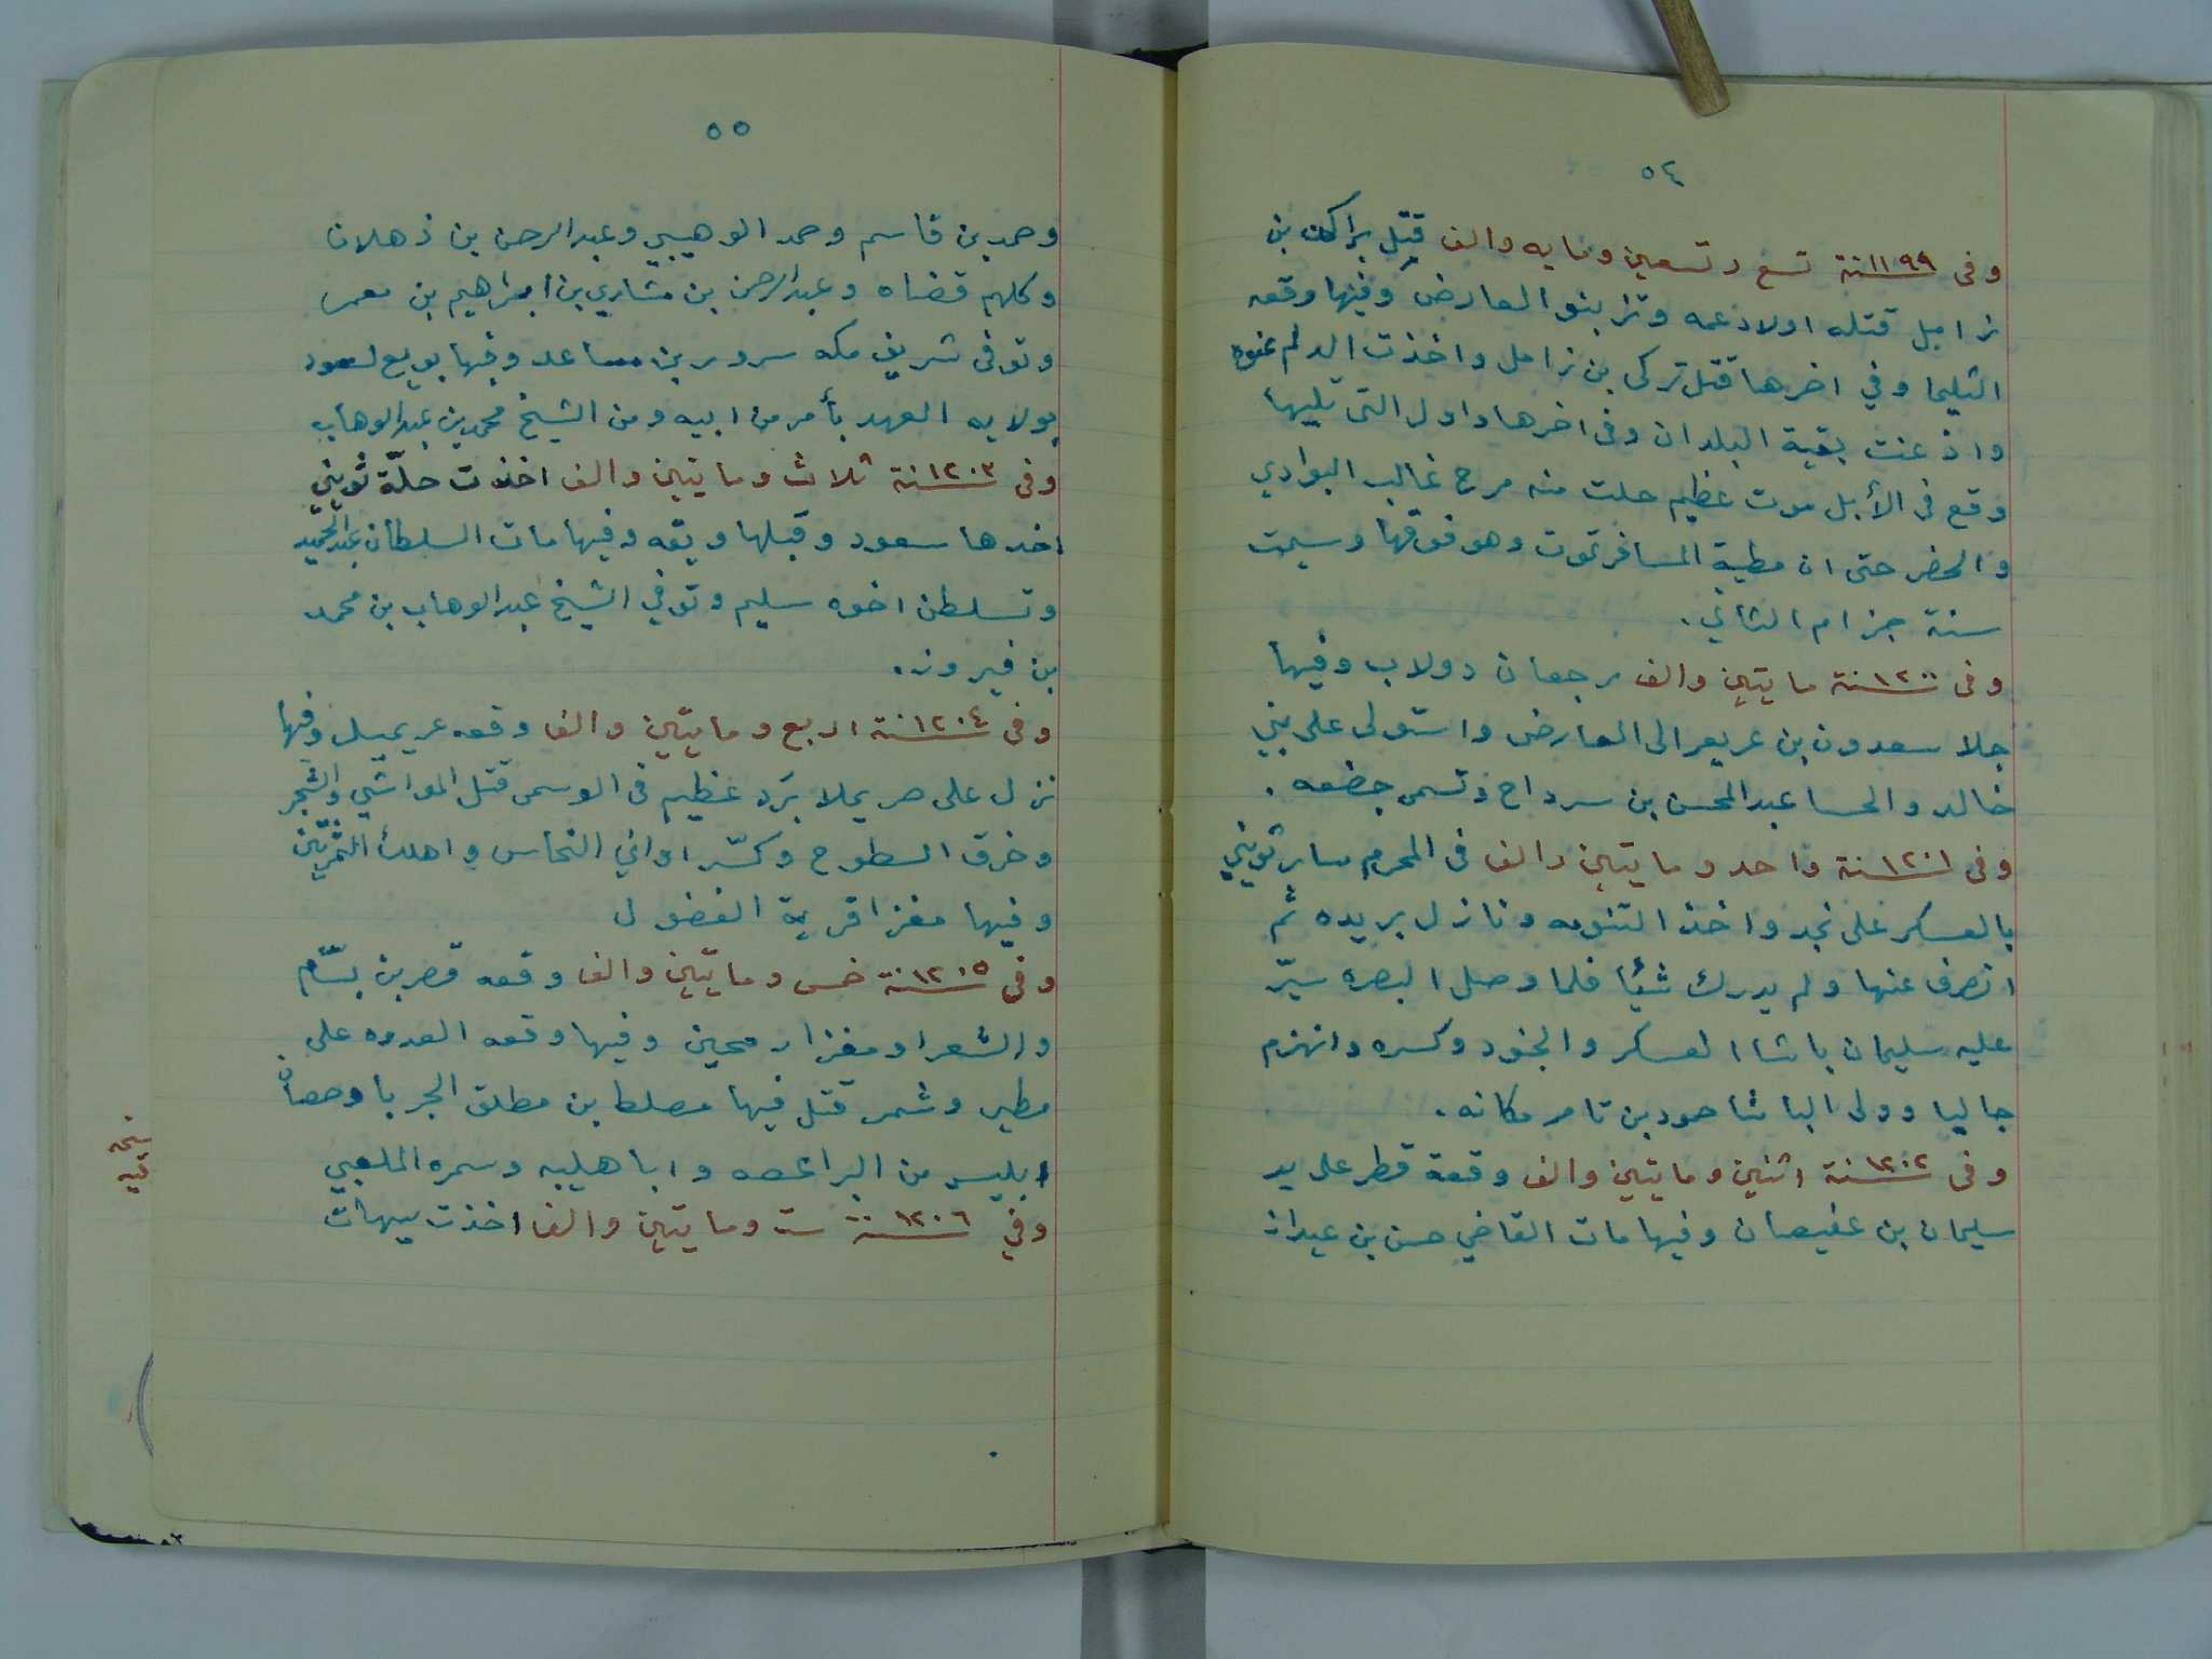 ٥٤
وفى ١١٩٩ سنة تسع وتسعين ومايه والف قتل براكان بن
زامل قتله اولاد عمه وتزبنو العارض وفيها وقعه
الثليما وفي اخرها قتل تركى بن زامل واخذت الدلم عنوه
واذعنت بقية البلدان وفى اخرها واول التى تليها
وقع فى الأبل موت عظيم حلت منه مرح غالب البوادي
والحضر حتى ان مطية المسافر تموت وهو فوقها وسيمت
سنة جزام الثاني.
وفى ١٢٠٠ سنة مايتين والف رجعان دولاب وفيها
جلا سعدون بن عريعر الى العارض واستولى على بني
خالد والحسا عبد المحسن بن سرداح وتسمى جضعه.
وفى ١٢٠١ سنة واحد ومايتين والف فى المحرم سار ثويني
بالعسكر على نجد واخذ التنومه ونازل بريده ثم
انصرف عنها ولم يدرك شيًا فلما وصل البصره سيّر
عليه سليمان باشا العسكر والجنود وكسره وانهزم
جاليا وولى الباشا حمود بن ثامر مكانه.
وفى ١٢٠٢ سنة اثنين ومايتين والف وقعة قطر على يد
سليمان بن عفيصان وفيها مات القاضي حسن بن عيدان
٥٥
وحمد بن قاسم وحمد الوهيبي وعبد الرحمن بن ذهلان
وكلهم قضاه وعبد الرحمن بن مشاري بن ابراهيم بن معمر
وتوفى شريف مكه سرور بن مساعد وفيها بويع لسعود
بولايه العهد بأمر من ابيه ومن الشيخ محمد بن عبد الوهاب
وفى ١٢٠٣ سنة ثلاث ومايتين والف اخذت حلّة ثويني
اخدها سعود وقبلها ويقه وفيها مات السلطان عبد الحميد
وتسلطن اخوه سليم وتوفي الشيخ عبد الوهاب بن محمد
بن فيروز.
وفى ١٢٠٤ سنة اربع ومايتين والف وقعه عريميل وفيها
نزل على حريملا بَرَد عظيم فى الوسمى قتل المواشي والشجر
وخرق السطوح وكسّر اواني النحاس واهلك
وفيها مغزا قرية الفضول
وفى ١٢٠٥ سنة خمس ومايتين والف وقعه قصر بن بسّام
والشعرا ومغزا رمحين وفيها وقعه العدوه على
مطير وشمر قتل فيها مصلط بن مطلق الجربا وحصان
ابليس من البراعصه وابا هليبه وسمره الملعبي
وفي ١٢٠٦ سنة ست ومايتين والف اخذت سيهات